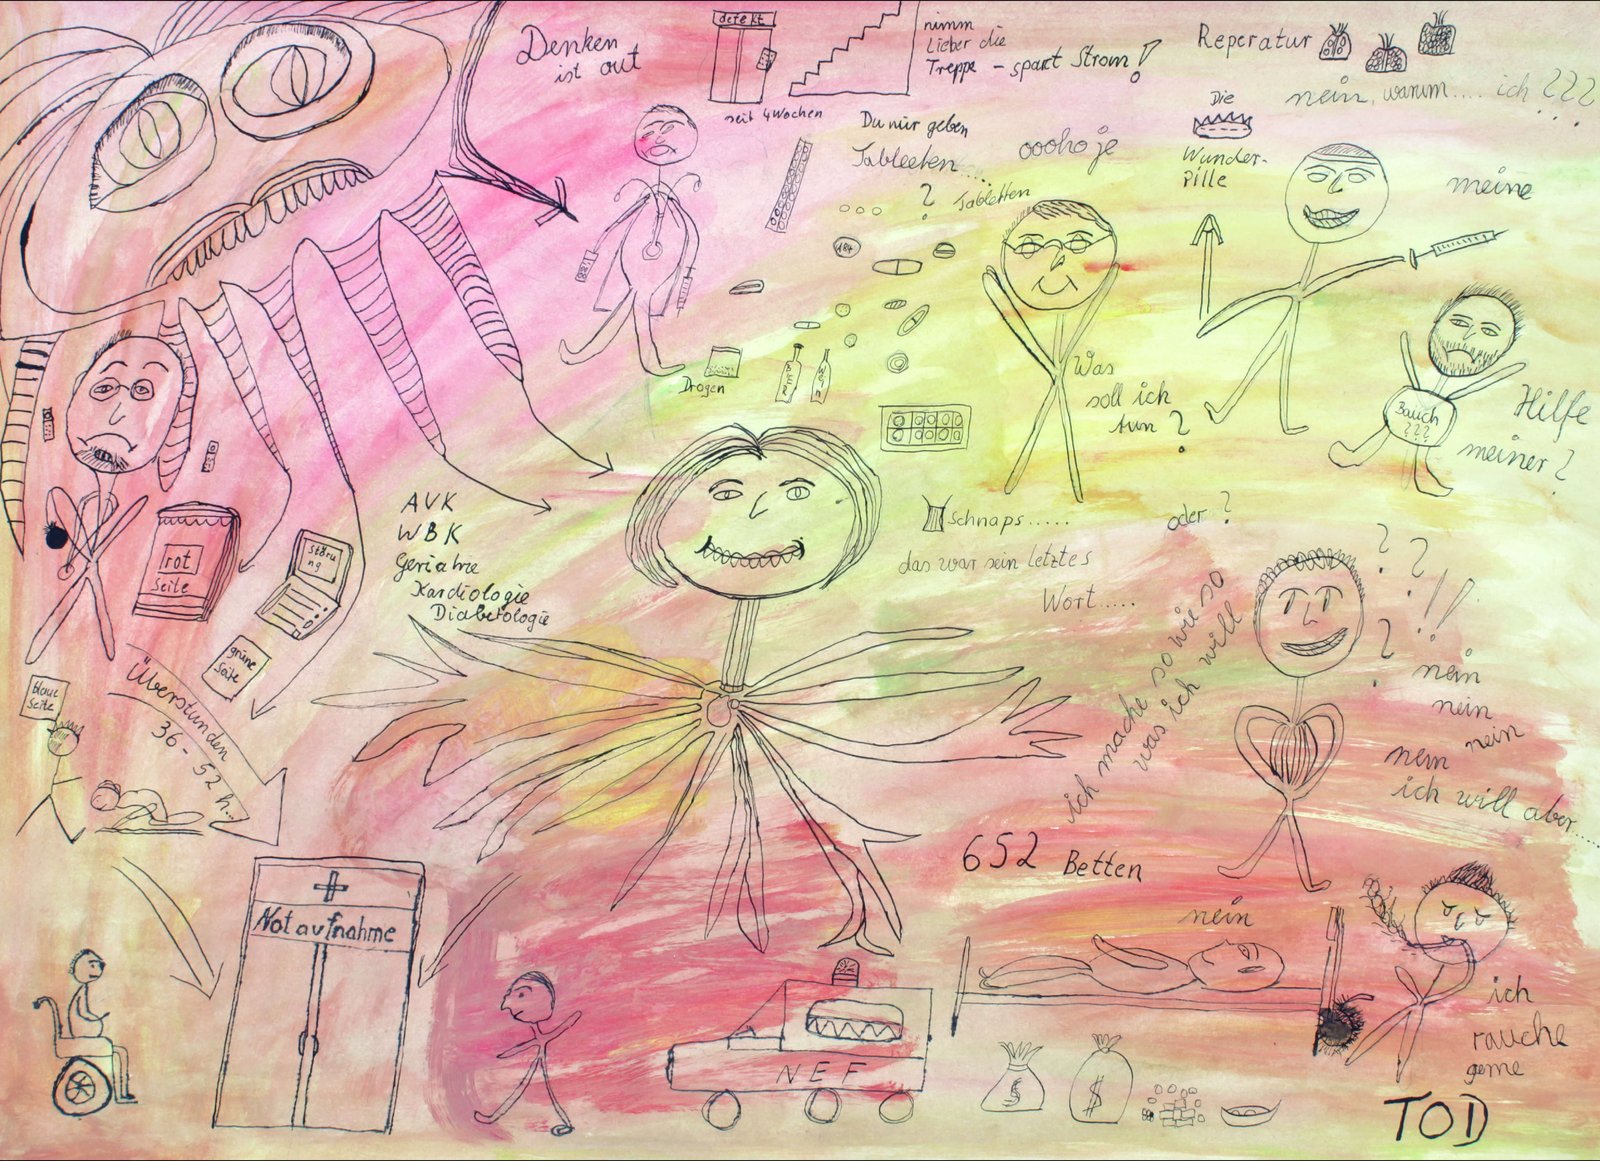 Denken
ist out
defekt
seit 4 Wochen
nimm
Lieber die
Treppe - spart Strom!
Reperatur
nein, warum.... ich ???
Du nur geben
Tableeten....
?
Tabletten
ooohoje
Die
Wunder-
Pille
meine
184
Drogen
Was
soll ich
tun?
Bauch
???
Hilfe
meiner?
AVK
WBK
Geriatrie
Kardiologie
Diabetologie
Schnaps.....
das war sein letztes
Wort.....
oder?
ich mache so wie so
was ich will
? ? !!
?
nein
nein
nein
nein
ich will aber....
rot
seite
störu
ng
grüne
Seite
blaue
seite
Überstunden
36 - 52 h...
Notaufnahme
652 Betten
nein
NEF
$
$
ich
rauche
gerne
TOD